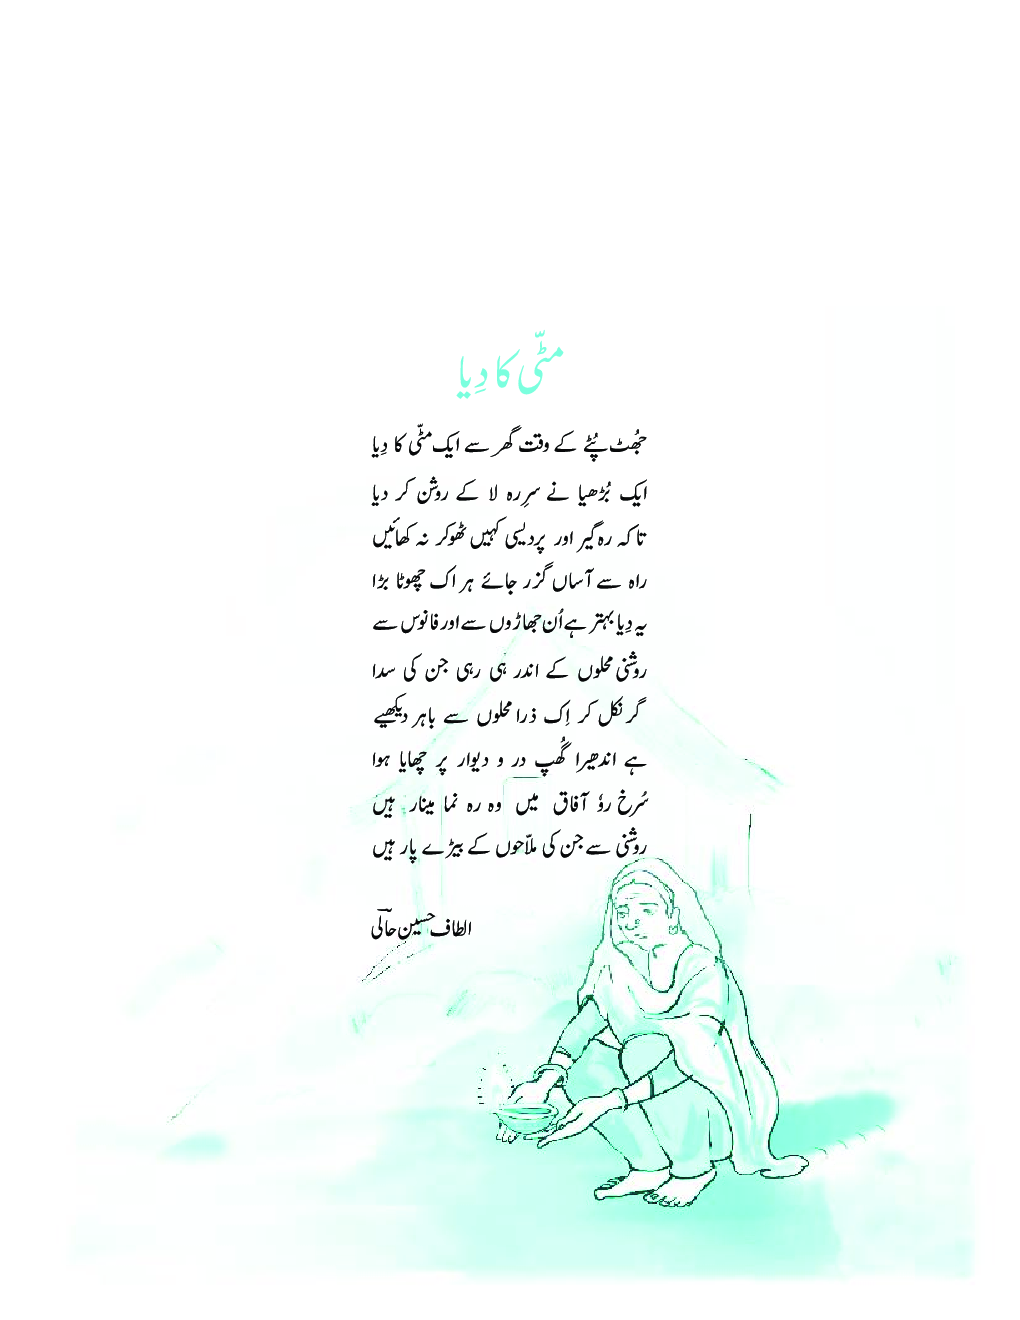 مٹّی کا دِیا
جُھٹ پُٹے کے وقت گھر سے ایک مٹّی کا دِیا
ایک بُڑھیا نے سرِرہ لا کے روشن کر دیا
تا کہ رہ گیر اور پردیسی کہیں ٹھوکر نہ کھائیں
راہ سے آساں گزر جائے ہر اک چھوٹا بڑا
یہ دِیا بہتر ہے اُن جھاڑوں سے اور فانوس سے
روشنی محلوں کے اندر ہی رہی جن کی سدا
گر نکل کر اِک ذرا محلوں سے باہر دیکھیے
ہے اندھیرا گُھپ در و دیوار پر چھایا ہوا
سُرخ رؤ آفاق میں وہ رہ نما مینار ہیں
روشنی سے جن کی ملاّحوں کے بیڑے پار ہیں
الطاف حسین حالؔی